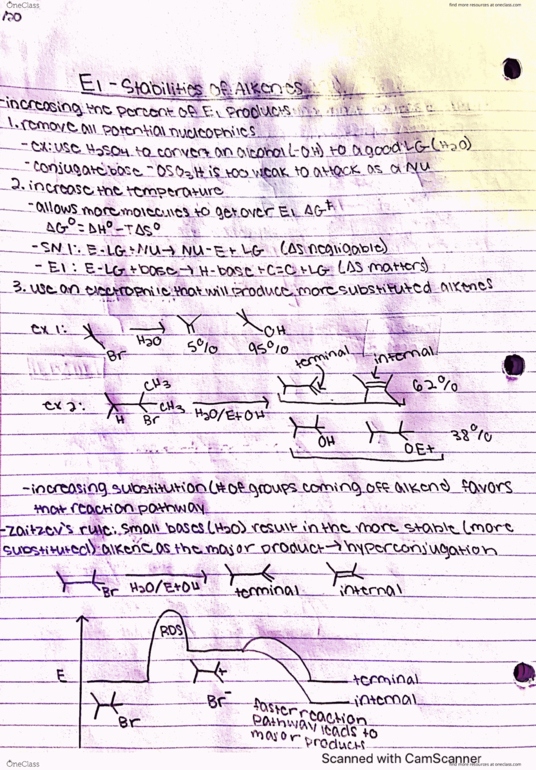 OneClass
find more resources at oneclass.com
120
E1 - Stabilities of Alkenes
-increasing the percent of E1 products
1. remove all potential nucleophiles
- ex: use H2SO4 to convert an alcohol (-OH) to a good LG (H2O)
- conjugate base -OSO3H is too weak to attack as a NU
2. increase the temperature
- allows more molecules to get over E1 ΔG‡
ΔG° = ΔH° - TΔS°
- SN1: E-LG + NU → NU-E + LG (ΔS negligable)
- E1: E-LG + base → H-base + C=C + LG (ΔS matters)
3. use an electrophile that will produce more substituted alkenes
ex 1:
Br
H2O
5%
OH
95%
terminal
internal
ex 2:
H
CH3
CH3
Br
H2O/EtOH
62%
OH
OEt
38%
- increasing substitution (# of groups coming off alkene) favors
that reaction pathway
- zaitzev's rule: small bases (H2O) result in the more stable (more
substituted) alkene as the major product → hyperconjugation
Br
H2O/EtOH
terminal
internal
E
RDS
+
Br
Br-
terminal
internal
faster reaction
pathway leads to
major products
Scanned with CamScanner
OneClass
find more resources at oneclass.com